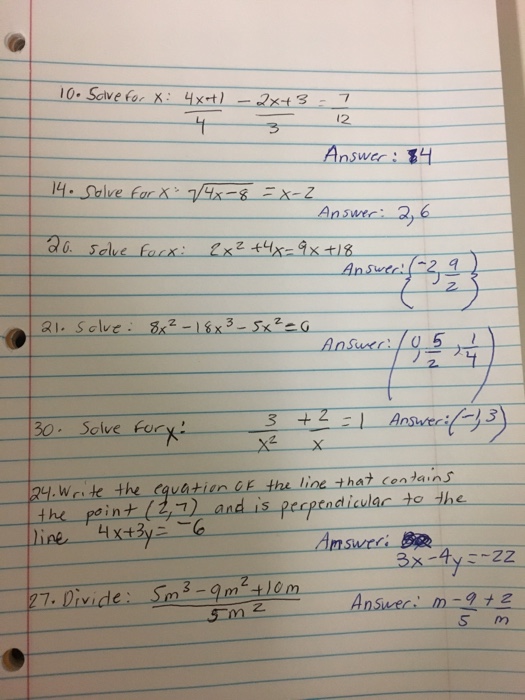 10. Solve for x: 4x+1/4 - 2x+3/3 = 7/12
Answer: 4
14. Solve for x: √4x-8 = x-2
Answer: 2,6
20. Solve for x: 2x² +4x=9x+18
Answer: {-2, 9/2}
21. Solve: 8x² -18x³ -5x²=0
Answer: (0, 5/2, 1/4)
30. Solve for x: 3/x² + 2/x = 1 Answer: (-1,3)
24. Write the equation OF the line that contains
the point (2,7) and is perpendicular to the
line 4x+3y=-6
Answer:
3x-4y=-22
27. Divide: 5m³-9m²+10m/5m²
Answer: m-9/5+2/m